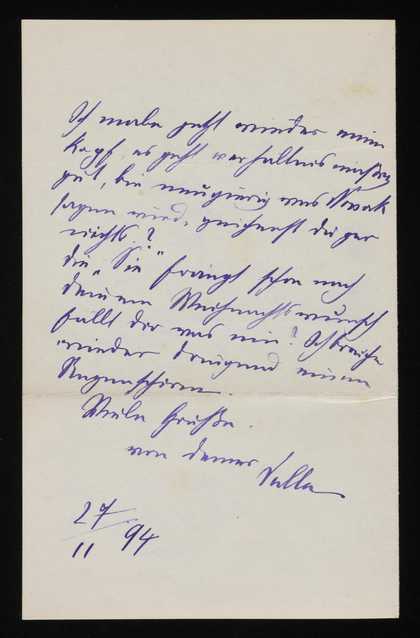 Ich male jetzt wieder einen
Kopf, es geht verhältnismäßig
gut, bin neugierig was Novak
sagen wird, zeichnest du gar
nichts?
die „Sie“ fraingt schon nach
deinem Weihnachtswunsch
fällt dir was ein? Ich brauche
wieder dringend einen
Regenschirm.
Viele Grüße.
von deiner
27/11 94